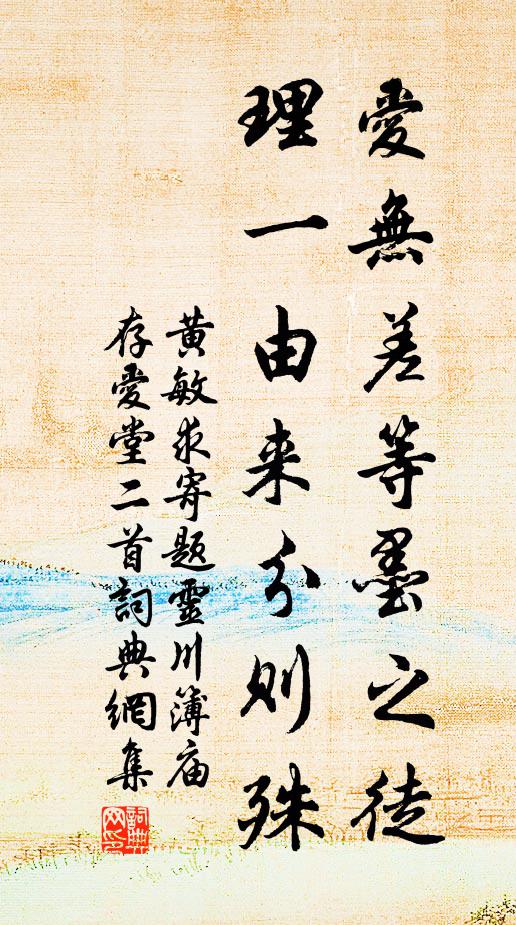 愛無差等墨之徒
理一由来分則殊
黃敏求寄題靈川簿庙
存愛堂二首詞典網集
詞典
网印